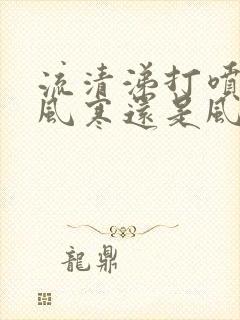 流清涕打噴
風寒還是風
龍鼎